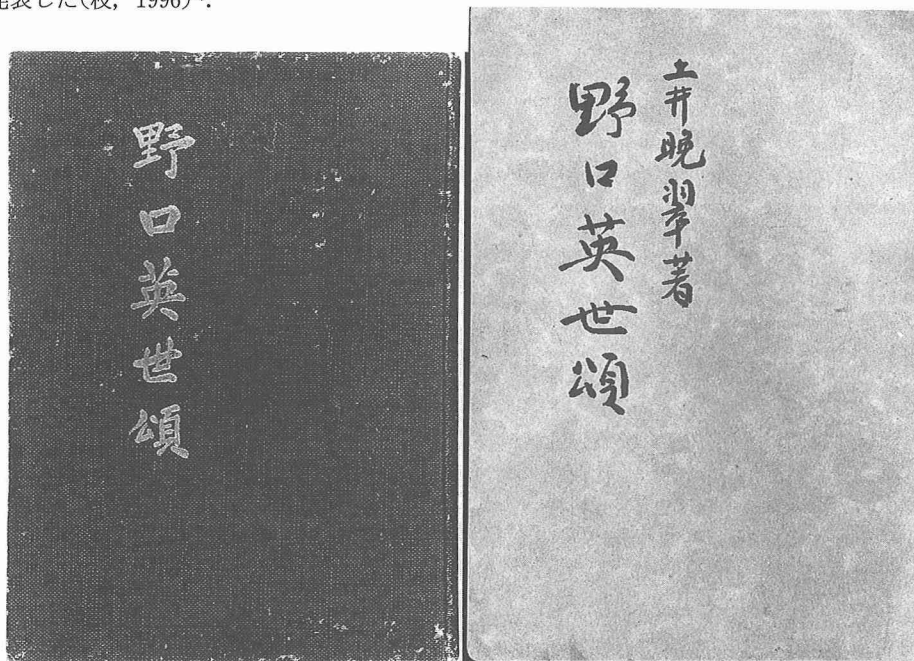 発表した(枝, 1996)
野口英世頌
土井晩翠著
野口英世頌